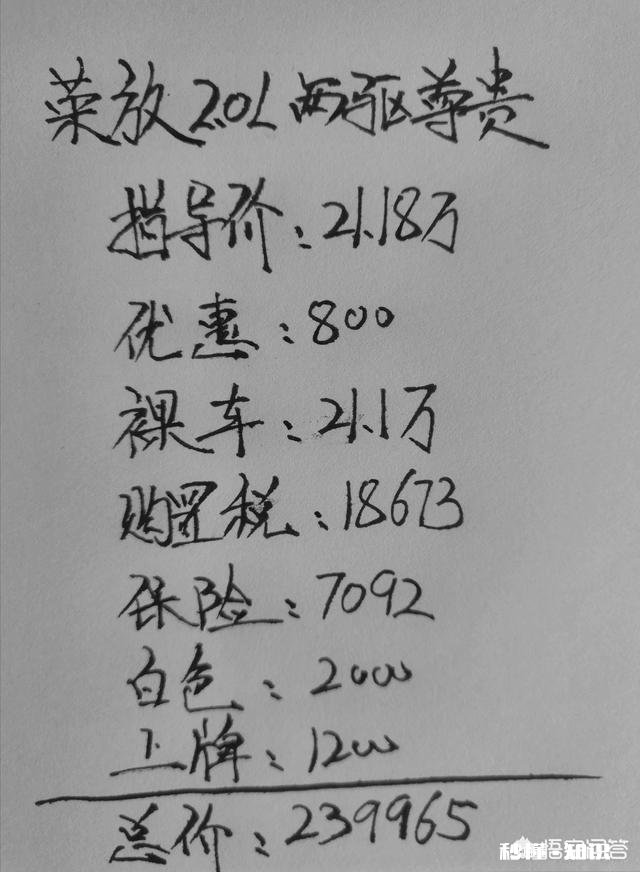 荣放2.0L两驱尊贵
指导价:21.18万
优惠:800
裸车:21.1万
购置税:18673
保险:7092
白色:2000
上牌:1200
总价:239965
悟空问答
秒懂 知识